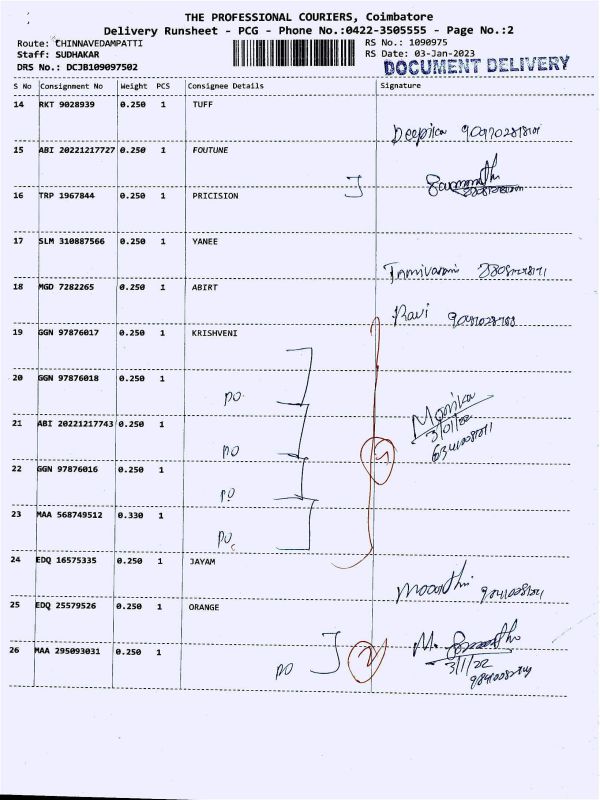 THE PROFESSIONAL COURIERS, Coimbatore
Delivery Runsheet - PCG - Phone No.:0422-3505555 - Page No.:2
Route: CHINNAVEDAMPATTI
RS No.: 1090975
Staff: SUDHAKAR
RS Date: 03-Jan-2023
DRS No.: DCJB109097502
DOCUMENT DELIVERY
S No Consignment No Weight PCS Consignee Details Signature
14 RKT 9028939 0.250 1 TUFF
Deepika
15 ABI 20221217727 0.250 1 FOUTUNE
16 TRP 1967844 0.250 1 PRICISION
17 SLM 310887566 0.250 1 YANEE
18 MGD 7282265 0.250 1 ABIRT
Ravi
19 GGN 97876017 0.250 1 KRISHVENI
20 GGN 97876018 0.250 1
PO
Monika
3/01/22
21 ABI 20221217743 0.250 1
PO
22 GGN 97876016 0.250 1
PO
23 MAA 568749512 0.330 1
PO
24 EDQ 16575335 0.250 1 JAYAM
25 EDQ 25579526 0.250 1 ORANGE
26 MAA 295093031 0.250 1
PO
2
3/1/22